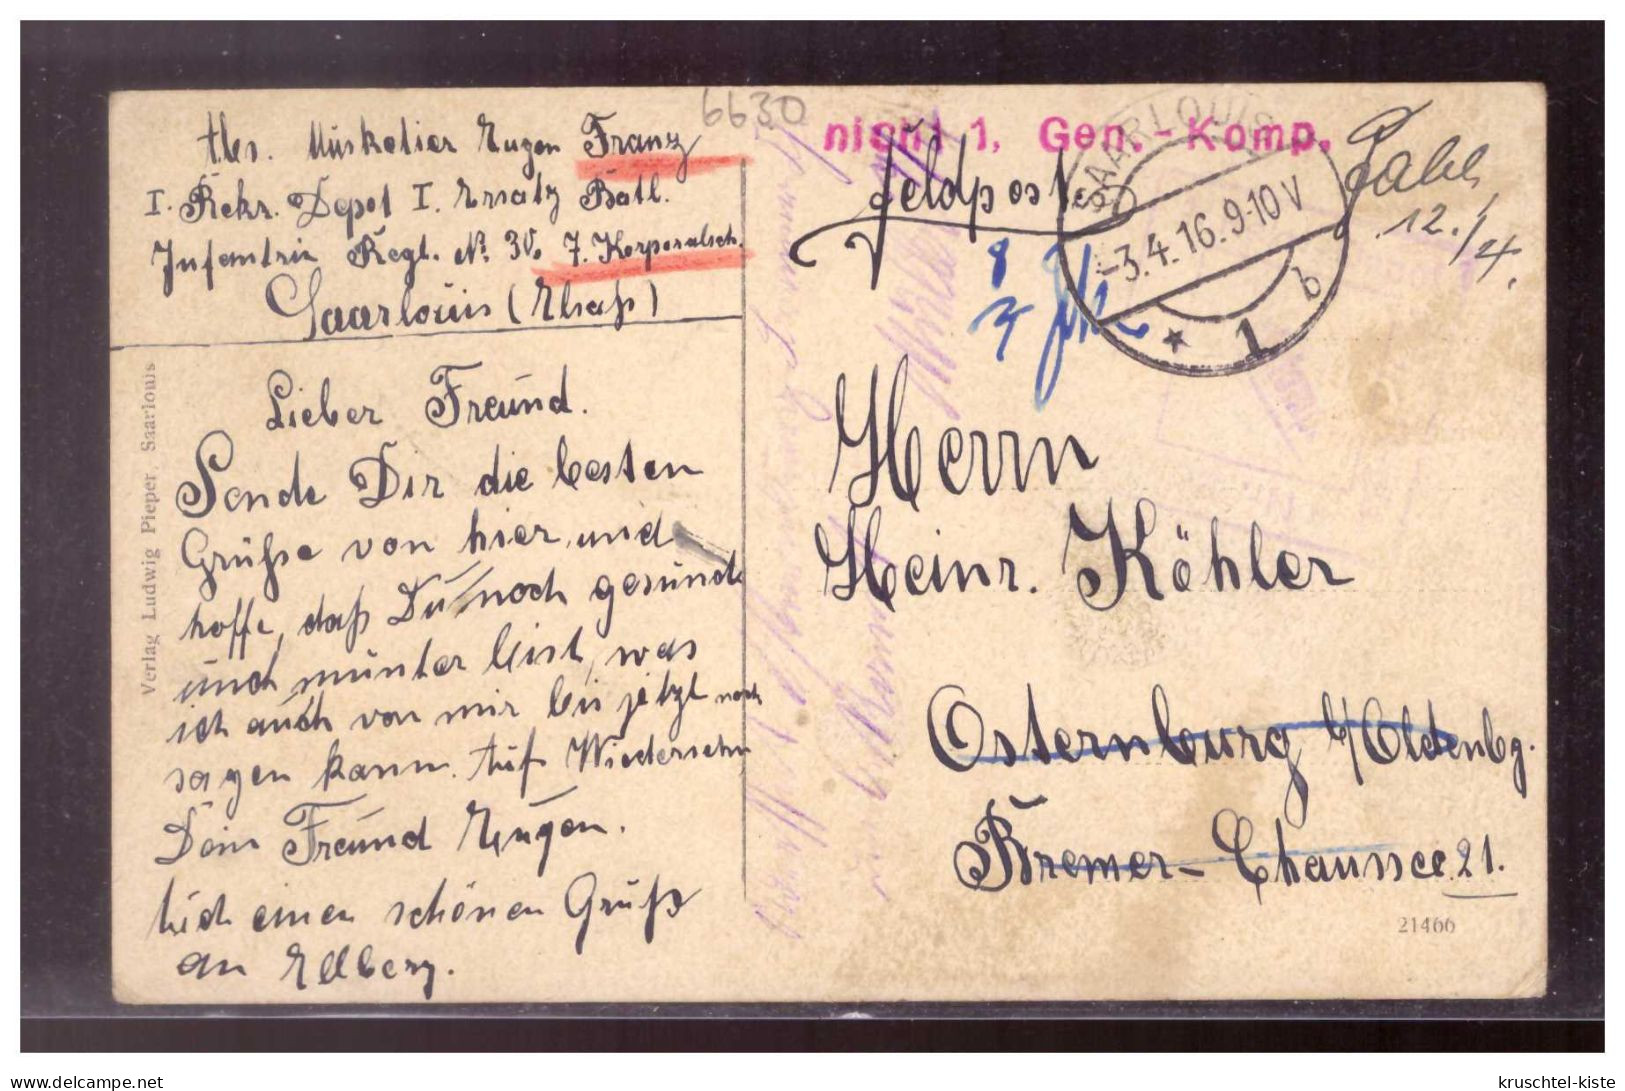 6630
Abs. Musketier Eugen Franz
I. Rekr. Depot I. Ersatz Batl.
Infantrie Regt. No. 30. 7. Korporalsch.
Saarlouis (Elsaß)
Lieber Freund.
Sende Dir die besten
Grüße von hier, und
hoffe, daß Du noch gesund
und munter bist, was
ich auch von mir bis jetzt noch
sagen kann. Auf Wiedersehn
Dein Freund Eugen.
einen schönen Gruß
an Ellberg.
Verlag Ludwig Pieper, Saarlouis
nicht 1. Gen.-Komp.
Feldpost.
SAARLOUIS
-3.4.16.9-10V
* 1 b
12./4.
8
Herrn
Heinr. Köhler
Osternburg b/Oldenbg.
Bremer-Chaussee 21.
21466
www.delcampe.net
kruschtel-kiste